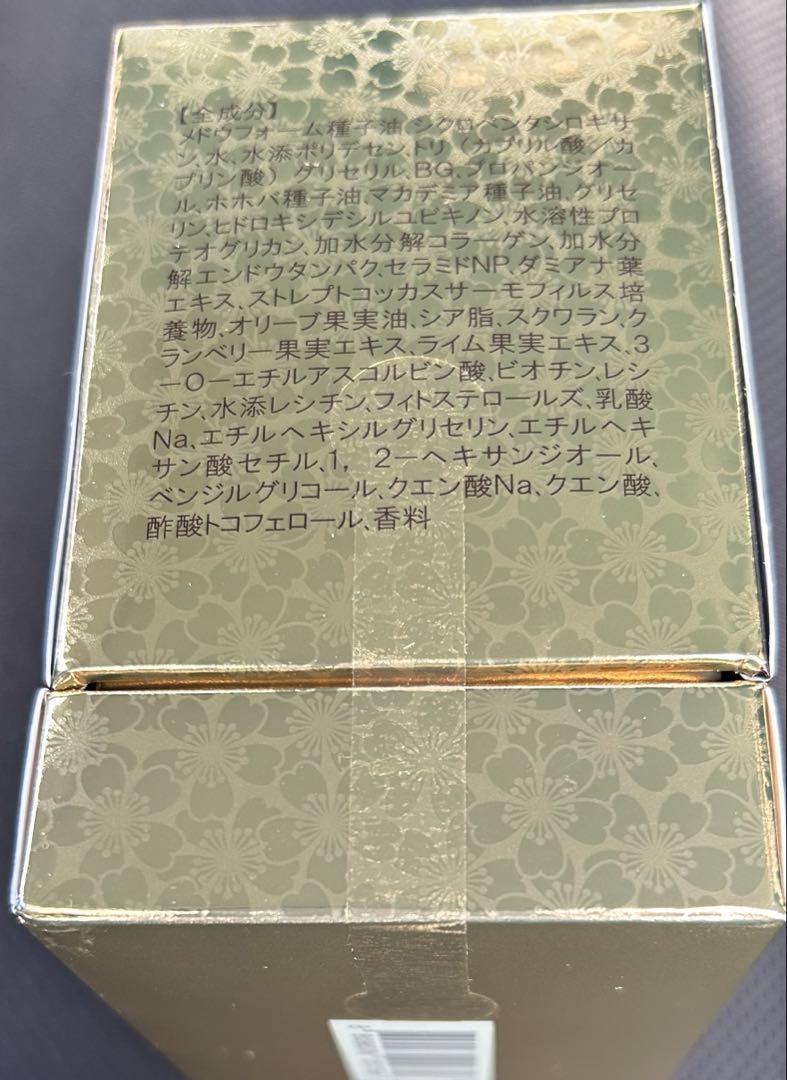 【全成分】
メドウフォーム種子油、シクロペンタシロキサ
ン、水、水添ポリデセン、トリ（カプリル酸／カ
プリン酸）グリセリル、BG、プロパンジオー
ル、ホホバ種子油、マカデミア種子油、グリセ
リン、ヒドロキシデシルユビキノン、水溶性プロ
テオグリカン、加水分解コラーゲン、加水分
解エンドウタンパク、セラミドNP、ダミアナ葉
エキス、ストレプトコッカスサーモフィルス培
養物、オリーブ果実油、シア脂、スクワラン、ク
ランベリー果実エキス、ライム果実エキス、3
－O－エチルアスコルビン酸、ビオチン、レシ
チン、水添レシチン、フィトステロールズ、乳酸
Na、エチルヘキシルグリセリン、エチルヘキ
サン酸セチル、1，2－ヘキサンジオール、
ベンジルグリコール、クエン酸Na、クエン酸、
酢酸トコフェロール、香料